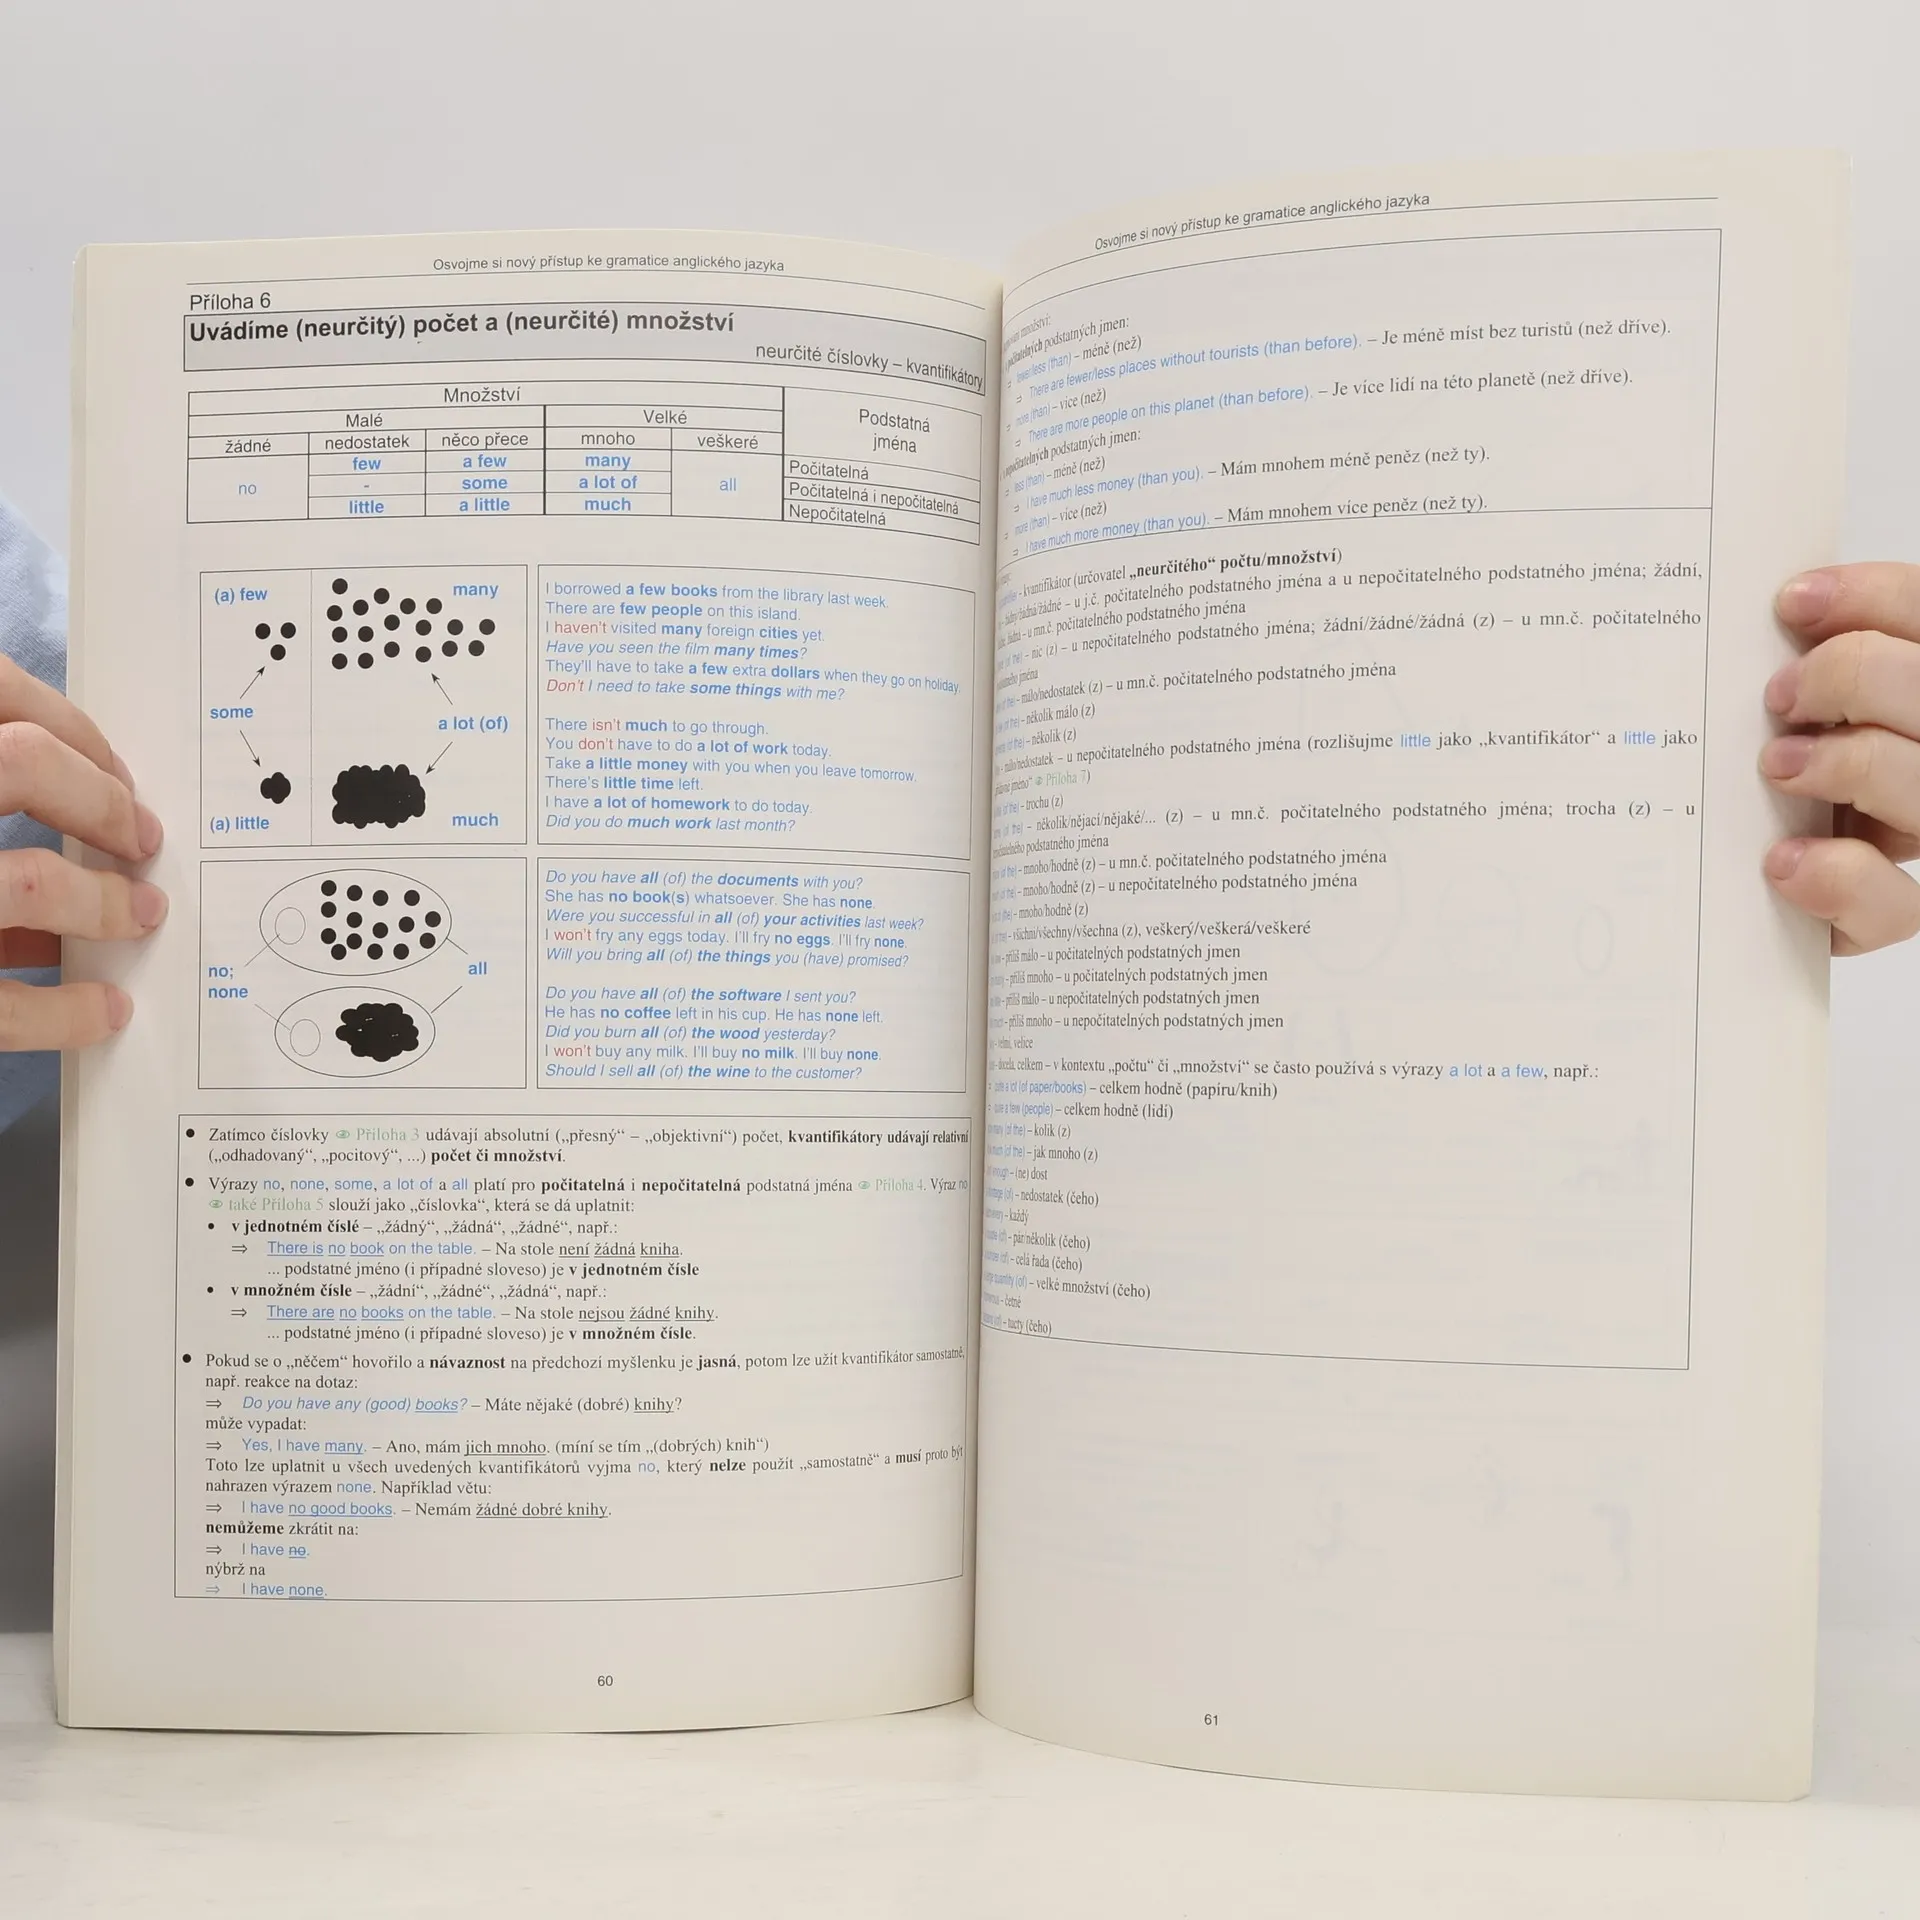 Osvojme si nový přístup ke gramatice anglického jazyka
Příloha 6
Uvádíme (neurčitý) počet a (neurčité) množství
neurčité číslovky – kvantifikátory
Množství
Podstatná jména
Malé Velké
žádné nedostatek něco přece mnoho veškeré
few a few many Počitatelná
no - some a lot of all Počitatelná i nepočitatelná
little a little much Nepočitatelná
(a) few many
some a lot (of)
(a) little much
I borrowed a few books from the library last week.
There are few people on this island.
I haven't visited many foreign cities yet.
Have you seen the film many times?
They'll have to take a few extra dollars when they go on holiday.
Don't I need to take some things with me?
There isn't much to go through.
You don't have to do a lot of work today.
Take a little money with you when you leave tomorrow.
There's little time left.
I have a lot of homework to do today.
Did you do much work last month?
no;
none
all
Do you have all (of) the documents with you?
She has no book(s) whatsoever. She has none.
Were you successful in all (of) your activities last week?
I won't fry any eggs today. I'll fry no eggs. I'll fry none.
Will you bring all (of) the things you (have) promised?
Do you have all (of) the software I sent you?
He has no coffee left in his cup. He has none left.
Did you burn all (of) the wood yesterday?
I won't buy any milk. I'll buy no milk. I'll buy none.
Should I sell all (of) the wine to the customer?
• Zatímco číslovky Příloha 3 udávají absolutní („přesný“ – „objektivní“) počet, kvantifikátory udávají relativní
(„odhadovaný“, „pocitový“, ...) počet či množství.
• Výrazy no, none, some, a lot of a all platí pro počitatelná i nepočitatelná podstatná jména Příloha 4. Výraz no
také Příloha 5 slouží jako „číslovka“, která se dá uplatnit:
• v jednotném číslé – „žádný“, „žádná“, „žádné“, např.:
⇒ There is no book on the table. – Na stole není žádná kniha.
... podstatné jméno (i případné sloveso) je v jednotném čísle
• v množném čísle – „žádní“, „žádné“, „žádná“, např.:
⇒ There are no books on the table. – Na stole nejsou žádné knihy.
... podstatné jméno (i případné sloveso) je v množném čísle.
• Pokud se o „něčem“ hovořilo a návaznost na předchozí myšlenku je jasná, potom lze užít kvantifikátor samostatně,
např. reakce na dotaz:
⇒ Do you have any (good) books? – Máte nějaké (dobré) knihy?
může vypadat:
⇒ Yes, I have many. – Ano, mám jich mnoho. (míní se tím „(dobrých) knih“)
Toto lze uplatnit u všech uvedených kvantifikátorů vyjma no, který nelze použít „samostatně“ a musí proto být
nahrazen výrazem none. Například větu:
⇒ I have no good books. – Nemám žádné dobré knihy.
nemůžeme zkrátit na:
⇒ I have no.
nýbrž na
⇒ I have none.
60
Osvojme si nový přístup ke gramatice anglického jazyka
množství:
podstatných jmen:
fewer/less (than) – méně (než)
⇒ There are fewer/less places without tourists (than before). – Je méně míst bez turistů (než dříve).
more (than) – více (než)
⇒ There are more people on this planet (than before). – Je více lidí na této planetě (než dříve).
nepočitatelných podstatných jmen:
less (than) – méně (než)
⇒ I have much less money (than you). – Mám mnohem méně peněz (než ty).
more (than) – více (než)
⇒ I have much more money (than you). – Mám mnohem více peněz (než ty).
– kvantifikátor (určovatel „neurčitého“ počtu/množství)
– žádný/žádná/žádné – u j.č. počitatelného podstatného jména a u nepočitatelného podstatného jména; žádní,
žádné, žádná – u mn.č. počitatelného podstatného jména
(of the) – nic (z) – u nepočitatelného podstatného jména; žádní/žádné/žádná (z) – u mn.č. počitatelného
jména
(of the) – málo/nedostatek (z) – u mn.č. počitatelného podstatného jména
(of the) – několik málo (z)
(of the) – několik (z)
– málo/nedostatek – u nepočitatelného podstatného jména (rozlišujme little jako „kvantifikátor“ a little jako
„přídavné jméno“ Příloha 7)
(of the) – trochu (z)
(of the) – několik/nějací/nějaké/... (z) – u mn.č. počitatelného podstatného jména; trocha (z) – u
nepočitatelného podstatného jména
(of the) – mnoho/hodně (z) – u mn.č. počitatelného podstatného jména
(of the) – mnoho/hodně (z) – u nepočitatelného podstatného jména
(the) – mnoho/hodně (z)
– všichni/všechny/všechna (z), veškerý/veškerá/veškeré
– příliš málo – u počitatelných podstatných jmen
– příliš mnoho – u počitatelných podstatných jmen
– příliš málo – u nepočitatelných podstatných jmen
– příliš mnoho – u nepočitatelných podstatných jmen
– velmi, velice
– docela, celkem – v kontextu „počtu“ či „množství“ se často používá s výrazy a lot a a few, např.:
quite a lot (of paper/books) – celkem hodně (papíru/knih)
quite a few (people) – celkem hodně (lidí)
(of the) – kolik (z)
(of the) – jak mnoho (z)
enough – (ne) dost
(of) – nedostatek (čeho)
– každý
(of) – pár/několik (čeho)
(of) – celá řada (čeho)
quantity (of) – velké množství (čeho)
– četné
(of) – tucty (čeho)
61